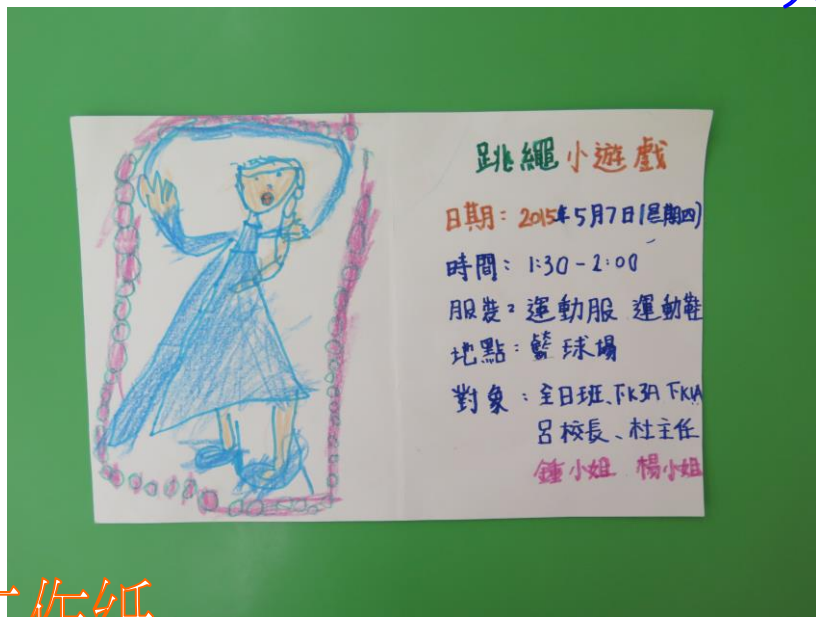 跳繩小遊戲
日期：2015年5月7日(星期四)
時間：1:30-2:00
服裝：運動服 運動鞋
地點：籃球場
對象：全日班、下K3A 下K1A
呂校長、杜主任
鍾小姐 楊小姐
作紙